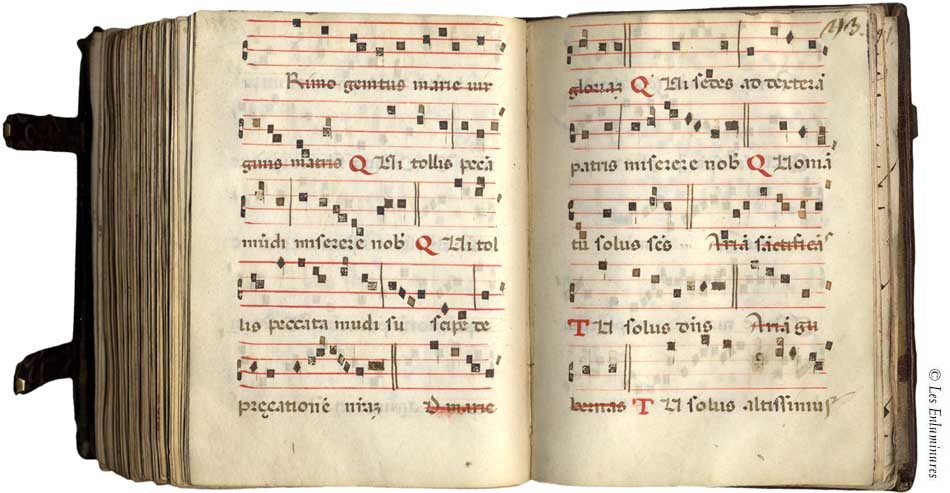 Rimo genitus marie vir
ginis matris Qui tollis peccā
mūdi miserere nob Qui tol
lis peccata mūdi su scipe de
precationē nrāʒ D marie
gloriāʒ Qui sedes ad dexterā
patris miserere nob Qoniā
tu solus scs Mariā sāctificās
Tu solus dn̄s Mariā gu
bernas Tu solus altissimus
© Les Enluminures